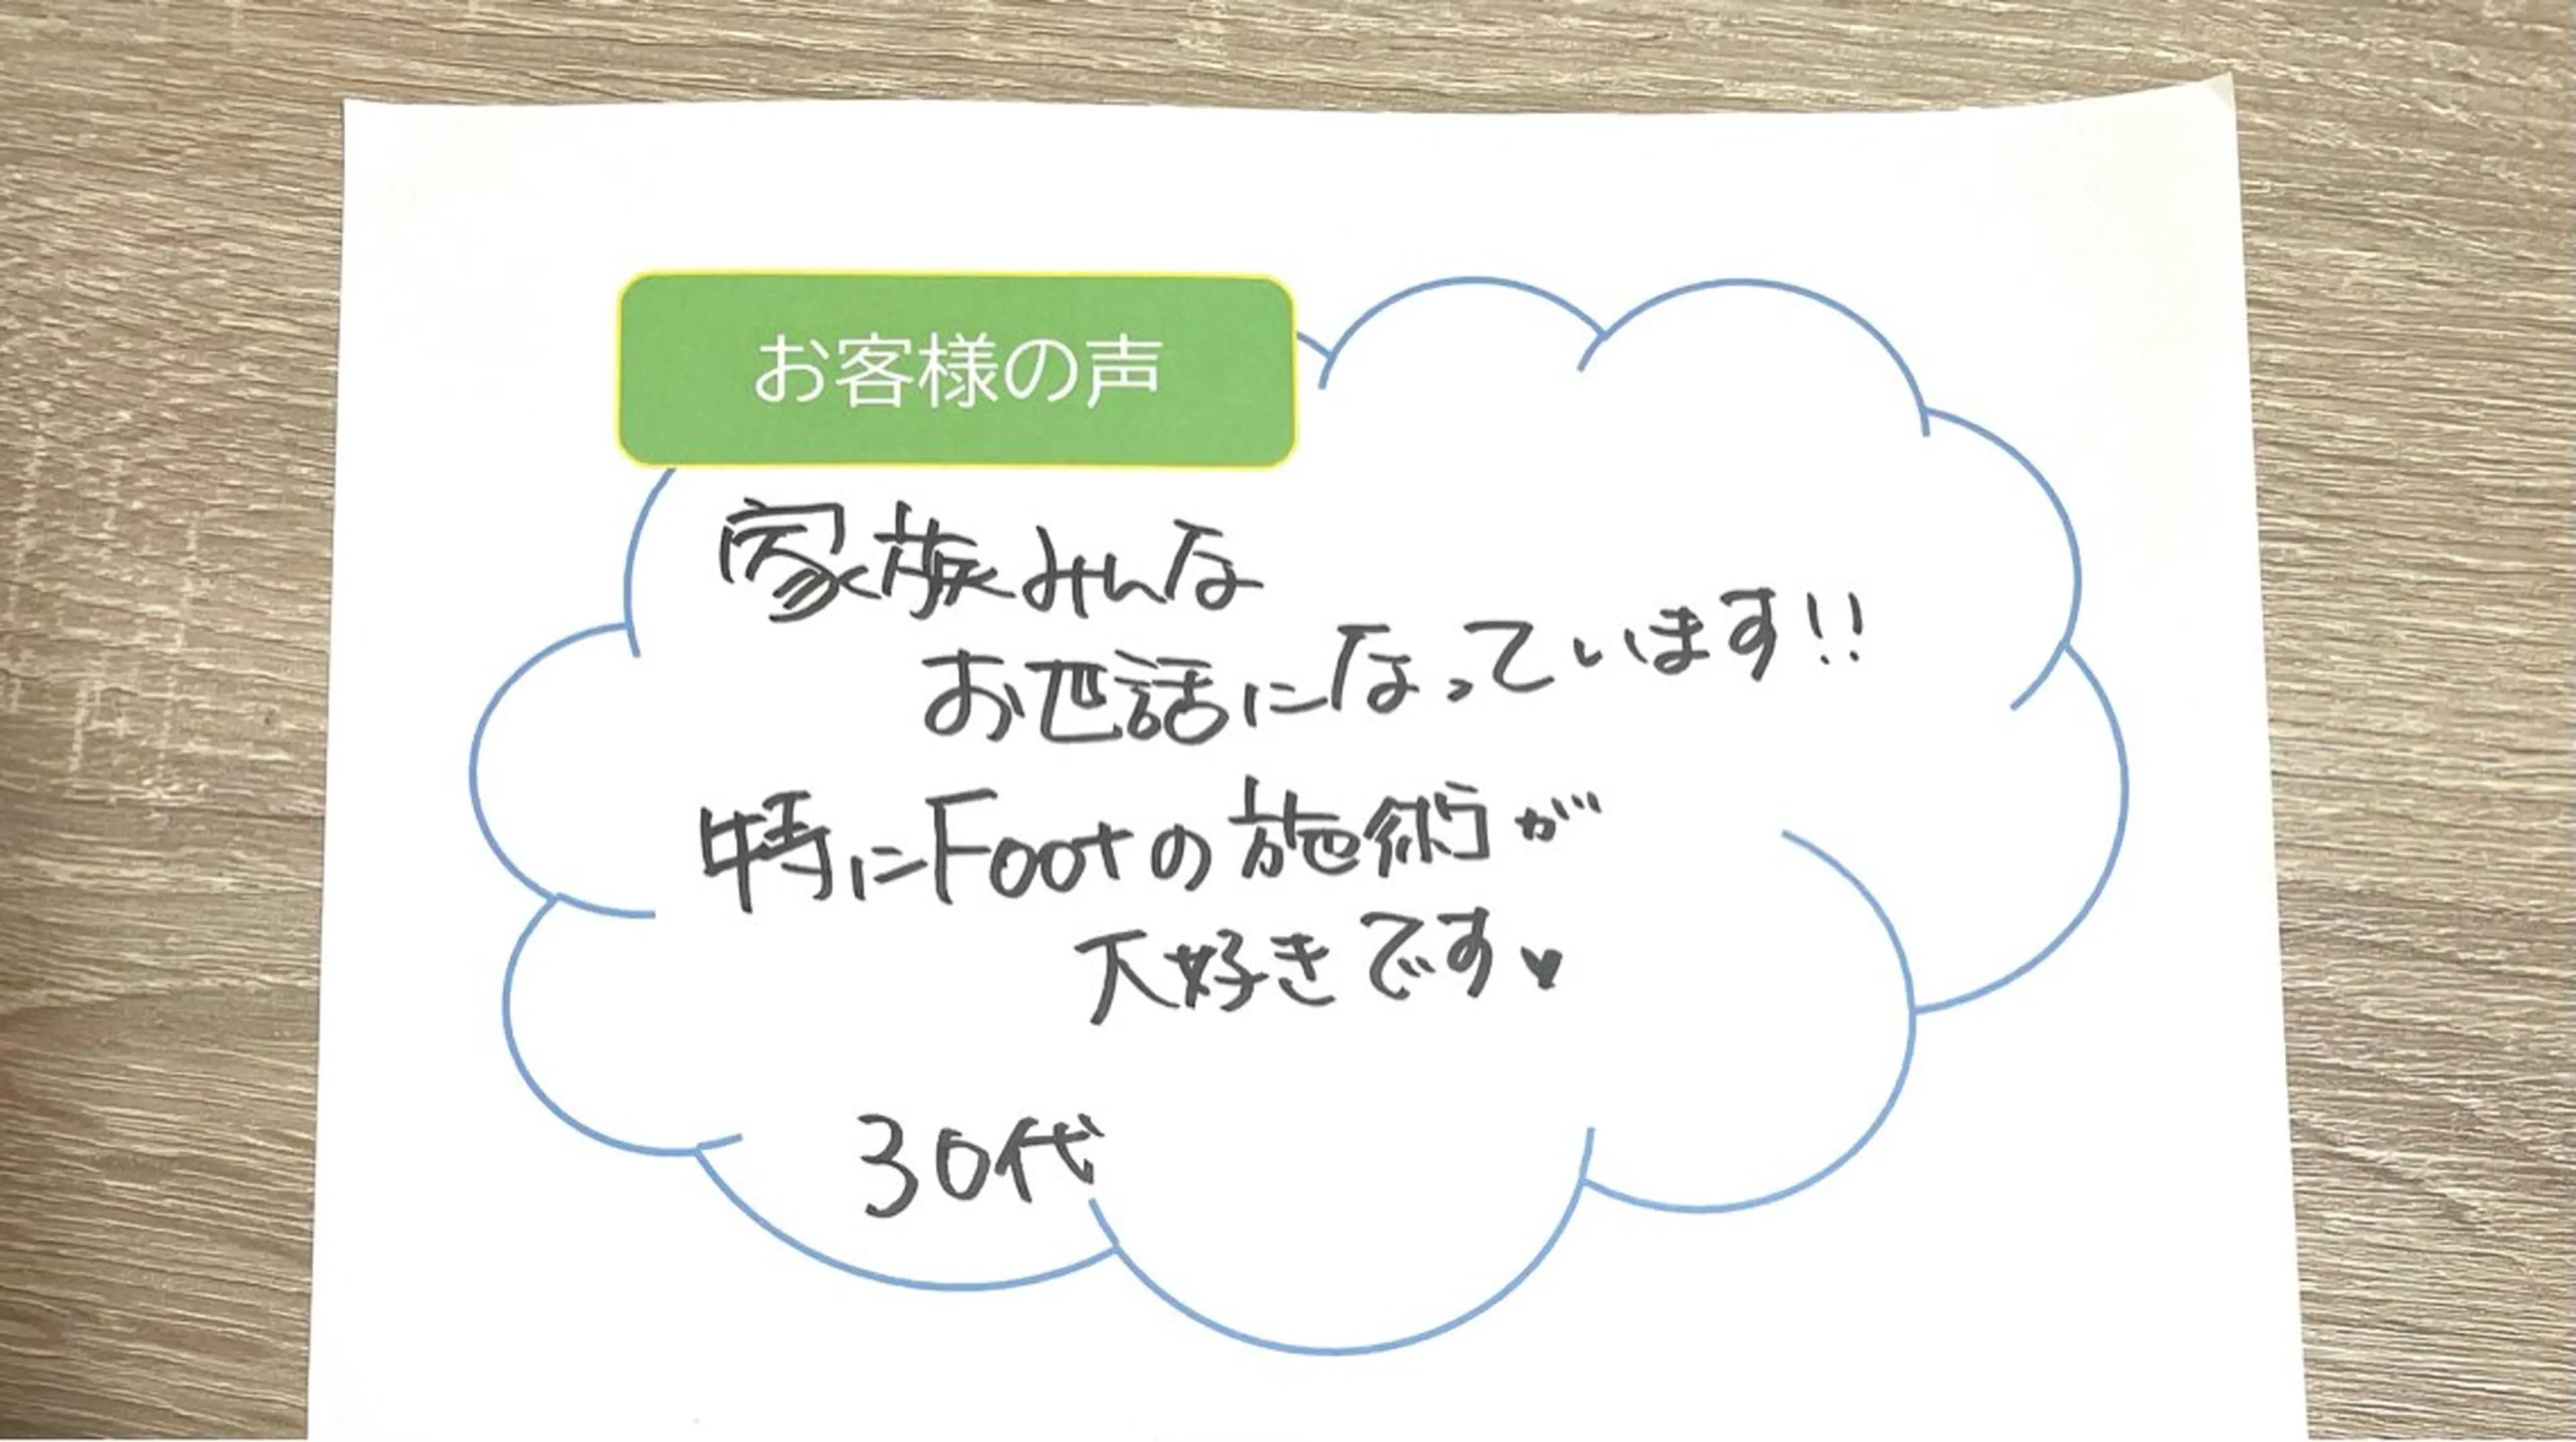 お客様の声
家族みんな
お世話になっています!!
特にFootの施術が
大好きです♥
30代